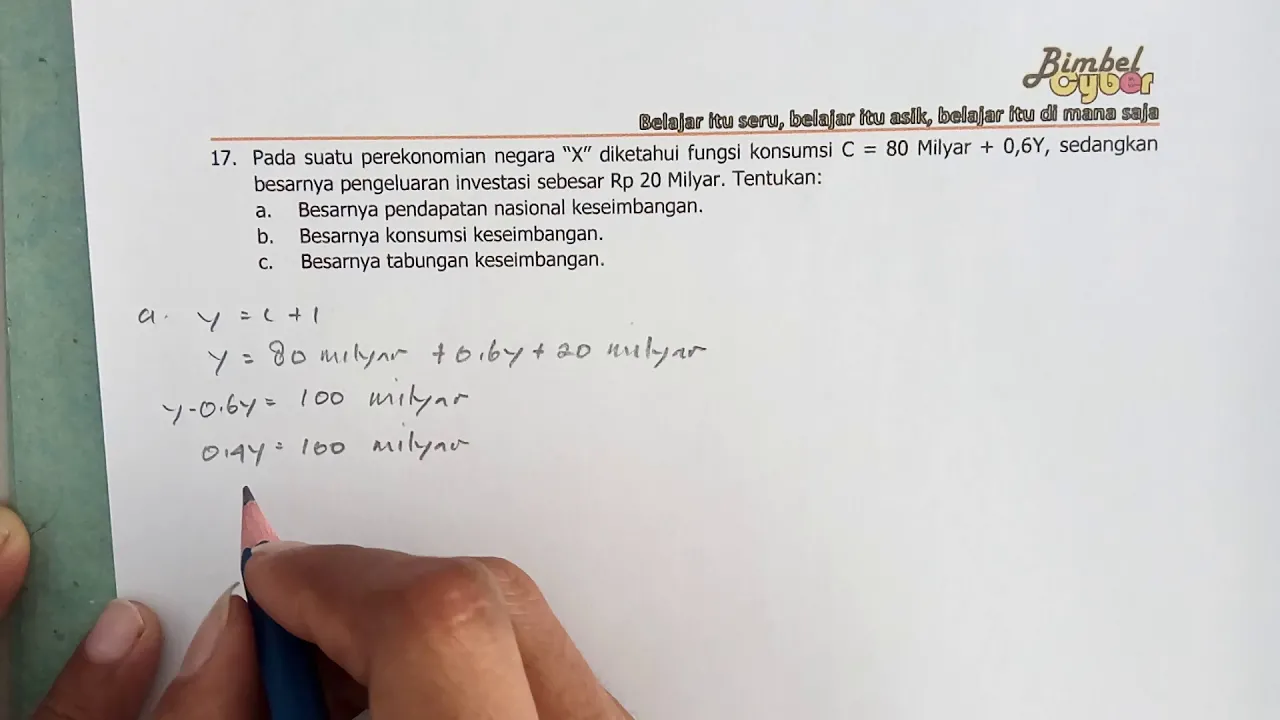 Bimbel
Cyber
Belajar itu seru, belajar itu asik, belajar itu di mana saja
17. Pada suatu perekonomian negara “X” diketahui fungsi konsumsi C = 80 Milyar + 0,6Y, sedangkan
besarnya pengeluaran investasi sebesar Rp 20 Milyar. Tentukan:
a. Besarnya pendapatan nasional keseimbangan.
b. Besarnya konsumsi keseimbangan.
c. Besarnya tabungan keseimbangan.
a. y = C + I
y = 80 milyar + 0,6y + 20 milyar
y - 0,6y = 100 milyar
0,4y = 100 milyar